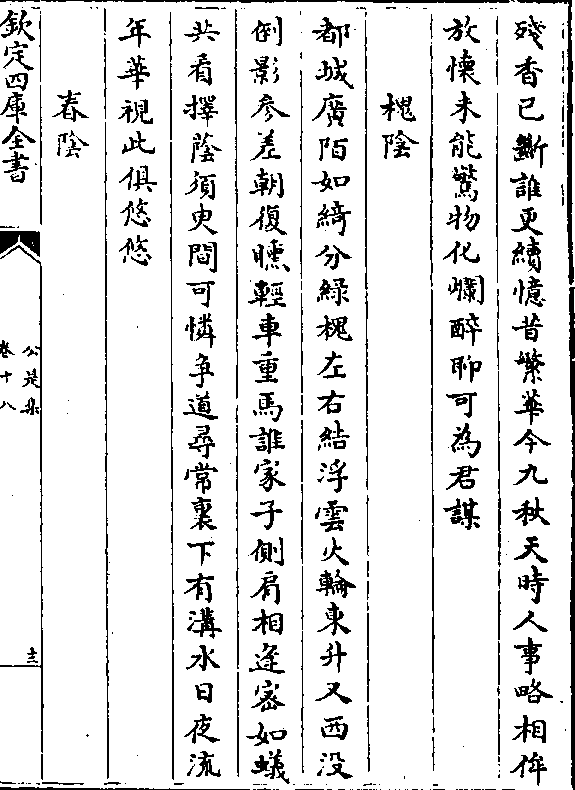 殘香已斷誰更續憶昔繁華今九秋天時人事略相侔
放懷未能驚物化爛醉聊可為君謀
槐陰
都城廣陌如綺分綠槐左右結浮雲火輪東升又西没
倒影參差朝復曛輕車重馬誰家子側肩相逢密如蟻
共看擇蔭須臾間可憐争道尋常裏下有溝水日夜流
年華視此俱悠悠
春陰
欽定四庫全書
公是集
卷十八
十三